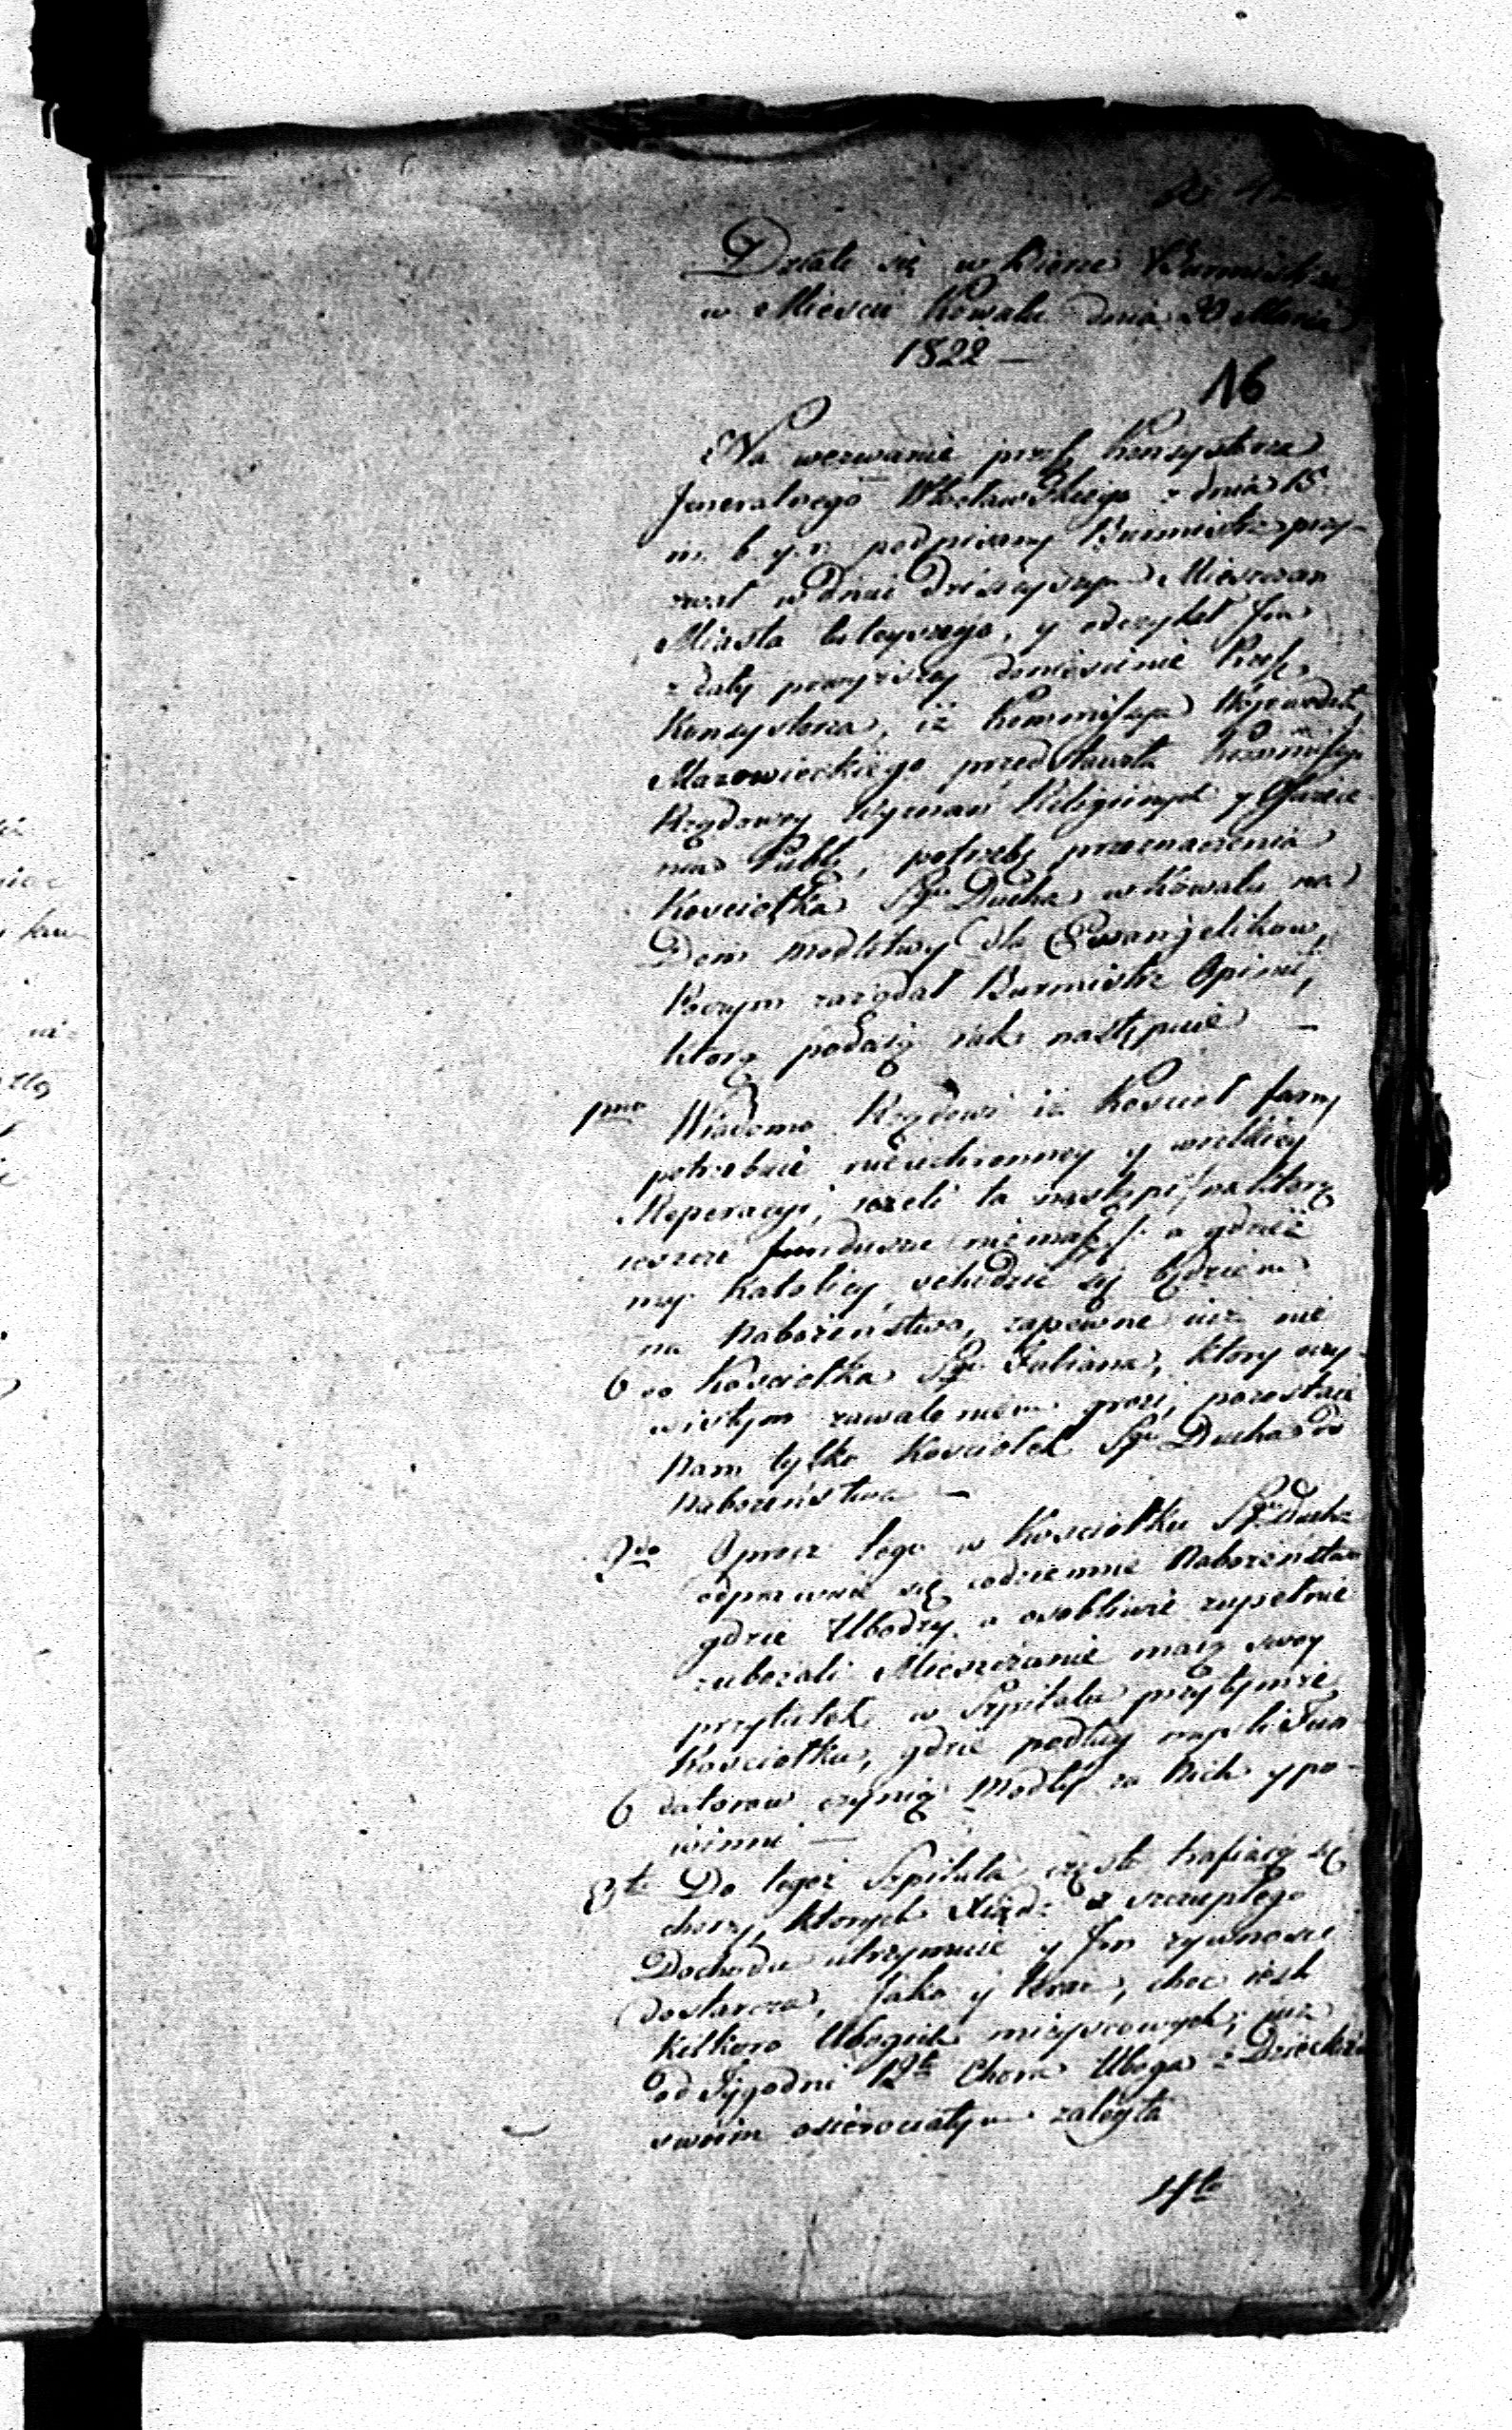 Działo się w Biórze Burmistrza
w Mieście Kowalu dnia 20 Marca
1822 —
16
Na wezwanie prześ. Konsystorza
Jeneralnego Włocławskiego z dnia 15
m. b. y r. podpisany Burmistrz przy-
zwał w dniu dzisieyszym Mieszczan
Miasta tuteyszego, y odczytał Im
z daty powyższey doniesienie Prześ.
Konsystorza, iż Kommissya Wojewodz.
Mazowieckiego przedstawiła Kommissyi
Rządowey Wyznań Religijnych y Oświece
nia Publ, potrzebę przeznaczenia
Kościołka Sgo Ducha w Kowalu na
Dom modlitwy dla Ewanjelikow,
Poczym zażądał Burmistrz Opinii,
ktorą podaią iak następuie —
pmo Wiadomo Rządowi iż Kościoł farny
potrzebuie nieuchronney y wielkiey
Reperacyi, ieżeli ta nastąpi, na ktorą
ieszcze fundusze niemasz, a gdzież
my Katolicy schodzić się będziem
na Nabożeństwo, zapewne iuż nie
6 do Kościołka Sgo Fabiana, ktory oczy-
wistym zawaleniem grozi, pozostaie
Nam tylko Kościołek Sgo Ducha do
Nabożeństwa —
2do Oprocz tego w Kościołku Sgo Ducha
odprawuie się codziennie Nabożeństwo
gdzie Ubodzy, a osobliwie zupełnie
zubożali Mieszczanie maią swoy
przytułek w Szpitalu przy tymże
Kościołku, gdzie podług myśli Fun
6 datorow czynią Modły za Nich y po-
winni —
3tio Do tegoż Szpitala często trafiaią się
chorzy, ktorych Xiądz z szczupłego
Dochodu utrzymuie y Im żywności
dostarcza, Jako y teraz, choc iest
kilkoro Ubogich mieyscowych; iuż
od Tygodni 12tu Chora Uboga z Dzieckiem
swoim osierociałym zaległa
4to